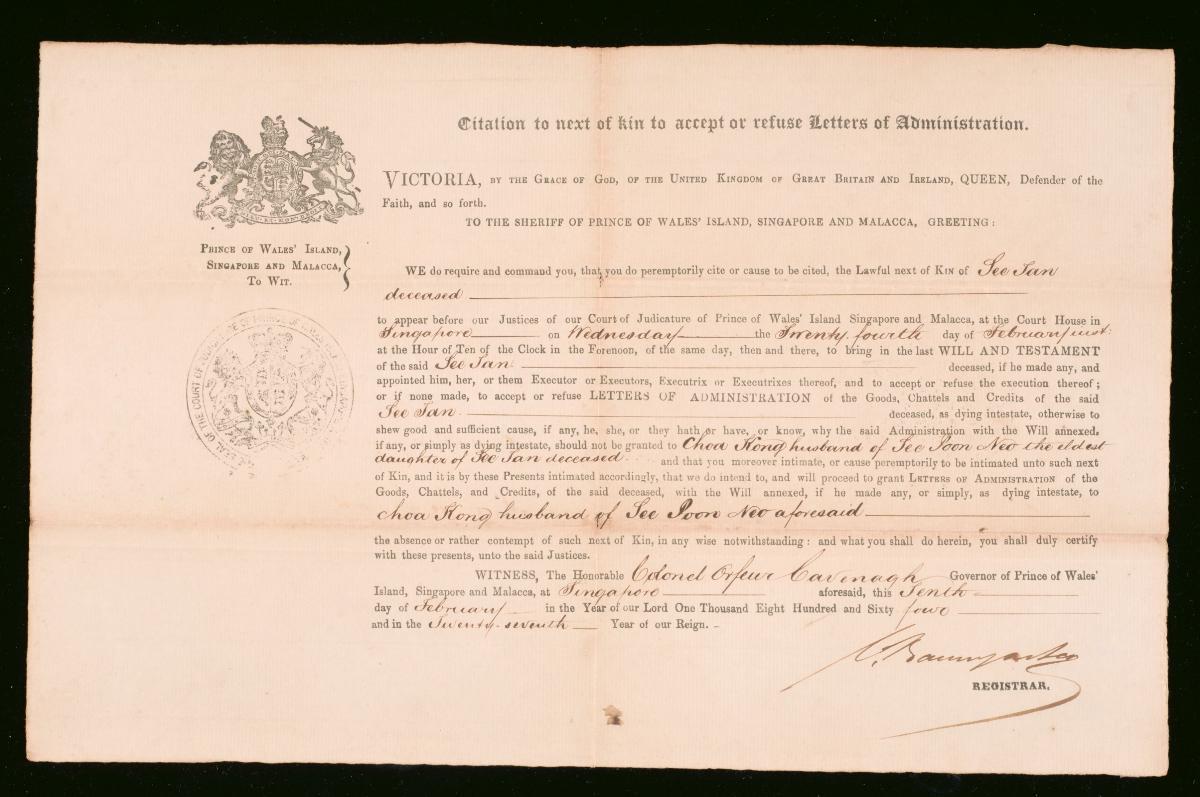 Citation to next of kin to accept or refuse Letters of Administration.
VICTORIA, BY THE GRACE OF GOD, OF THE UNITED KINGDOM OF GREAT BRITAIN AND IRELAND, QUEEN, Defender of the
Faith, and so forth.
TO THE SHERIFF OF PRINCE OF WALES' ISLAND, SINGAPORE AND MALACCA, GREETING:
PRINCE OF WALES' ISLAND,
SINGAPORE AND MALACCA,
TO WIT.
WE do require and command you, that you do peremptorily cite or cause to be cited, the Lawful next of KIN of See Tan
deceased
to appear before our Justices of our Court of Judicature of Prince of Wales' Island Singapore and Malacca, at the Court House in
Singapore on Wednesday the Twenty fourth day of February inst:
at the Hour of Ten of the Clock in the Forenoon, of the same day, then and there, to bring in the last WILL AND TESTAMENT
of the said See Tan deceased, if he made any, and
appointed him, her, or them Executor or Executors, Executrix or Executrixes thereof, and to accept or refuse the execution thereof;
or if none made, to accept or refuse LETTERS OF ADMINISTRATION of the Goods, Chattels and Credits of the said
See Tan deceased, as dying intestate, otherwise to
shew good and sufficient cause, if any, he, she, or they hath or have, or know, why the said Administration with the Will annexed,
if any, or simply as dying intestate, should not be granted to Choa Kong husband of See Poon Neo the eldest
daughter of See Tan deceased and that you moreover intimate, or cause peremptorily to be intimated unto such next
of Kin, and it is by these Presents intimated accordingly, that we do intend to, and will proceed to grant LETTERS OF ADMINISTRATION of the
Goods, Chattels, and Credits, of the said deceased, with the Will annexed, if he made any, or simply, as dying intestate, to
Choa Kong husband of See Poon Neo aforesaid
the absence or rather contempt of such next of Kin, in any wise notwithstanding: and what you shall do herein, you shall duly certify
with these presents, unto the said Justices.
WITNESS, The Honorable Colonel Orfeur Cavenagh Governor of Prince of Wales'
Island, Singapore and Malacca, at Singapore aforesaid, this Tenth
day of February in the Year of our Lord One Thousand Eight Hundred and Sixty four
and in the Twenty-seventh Year of our Reign.
C. Baumgarten
REGISTRAR.